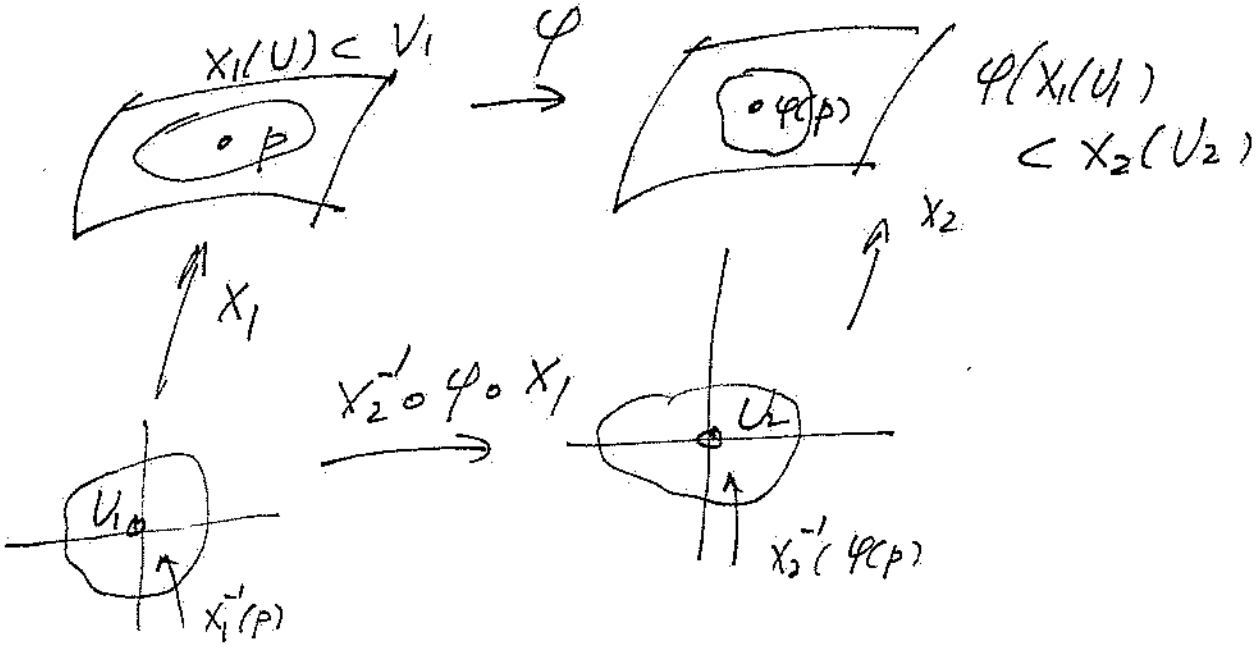 X₁(U) ⊂ V₁
φ
p
φ(p)
φ(X₁(U₁)
⊂ X₂(U₂)
X₁
X₂
X₂⁻¹ ∘ φ ∘ X₁
U₁
X₁⁻¹(p)
U₂
X₂⁻¹(φ(p)